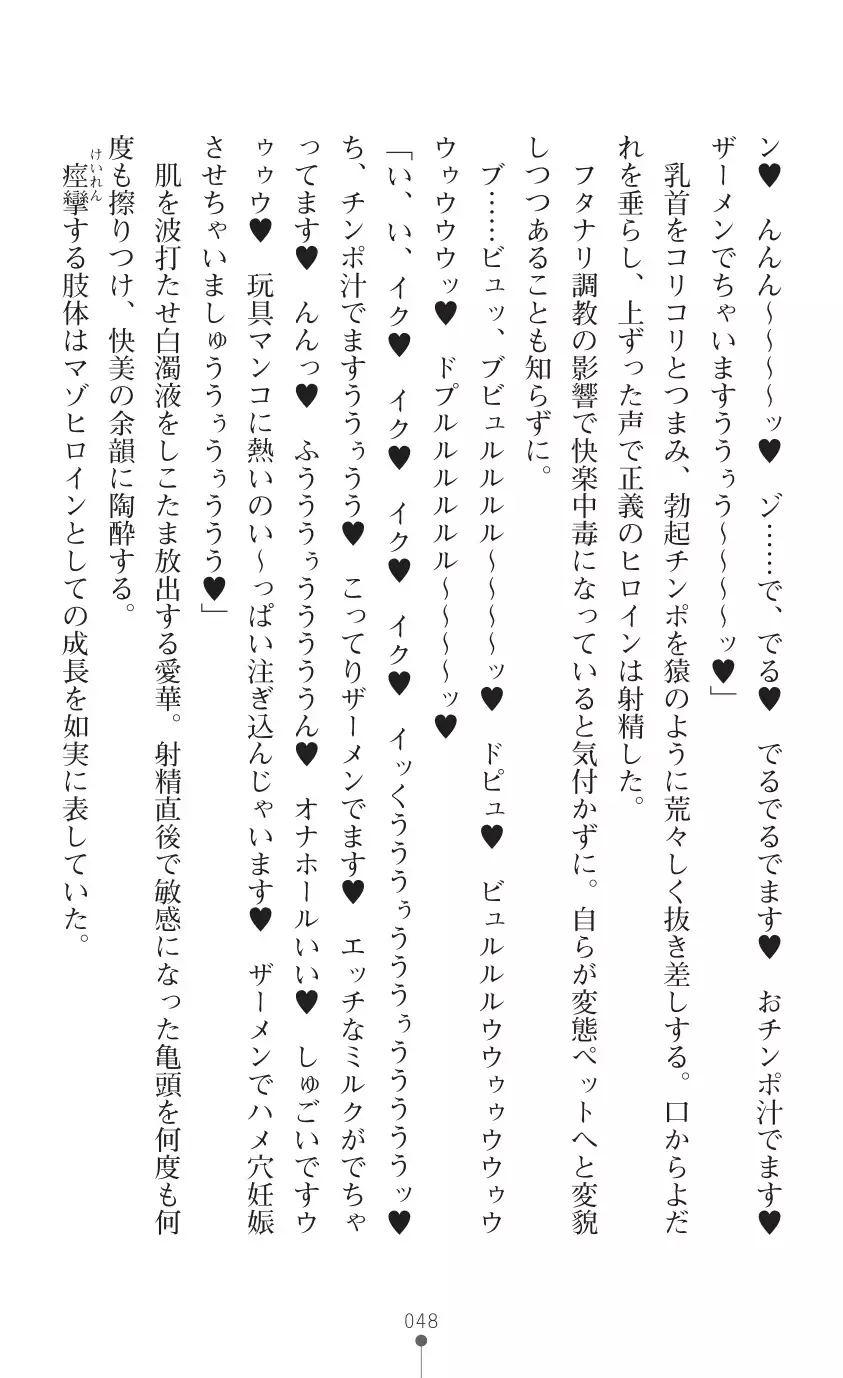 ン♥　んんん～～～～ッ♥　ゾ……で、でる♥　でるでるでます♥　おチンポ汁でます♥
ザーメンでちゃいますううぅう～～～～ッ♥」
　乳首をコリコリとつまみ、勃起チンポを猿のように荒々しく抜き差しする。口からよだ
れを垂らし、上ずった声で正義のヒロインは射精した。
　フタナリ調教の影響で快楽中毒になっていると気付かずに。自らが変態ペットへと変貌
しつつあることも知らずに。
　ブ……ビュッ、ブビュルルルル～～～～ッ♥　ドピュ♥　ビュルルルウウゥゥウウゥウ
ウゥウウウッ♥　ドプルルルルルル～～～～ッ♥
「い、い、イク♥　イク♥　イク♥　イク♥　イッくうううぅうううぅうううううッ♥
ち、チンポ汁でますううぅうう♥　こってりザーメンでます♥　エッチなミルクがでちゃ
ってます♥　んんっ♥　ふうううぅうううううん♥　オナホールいい♥　しゅごいですウ
ゥゥウ♥　玩具マンコに熱いのい～っぱい注ぎ込んじゃいます♥　ザーメンでハメ穴妊娠
させちゃいましゅううぅうぅううう♥」
　肌を波打たせ白濁液をしこたま放出する愛華。射精直後で敏感になった亀頭を何度も何
度も擦りつけ、快美の余韻に陶酔する。
けいれん
　痙攣する肢体はマゾヒロインとしての成長を如実に表していた。
048